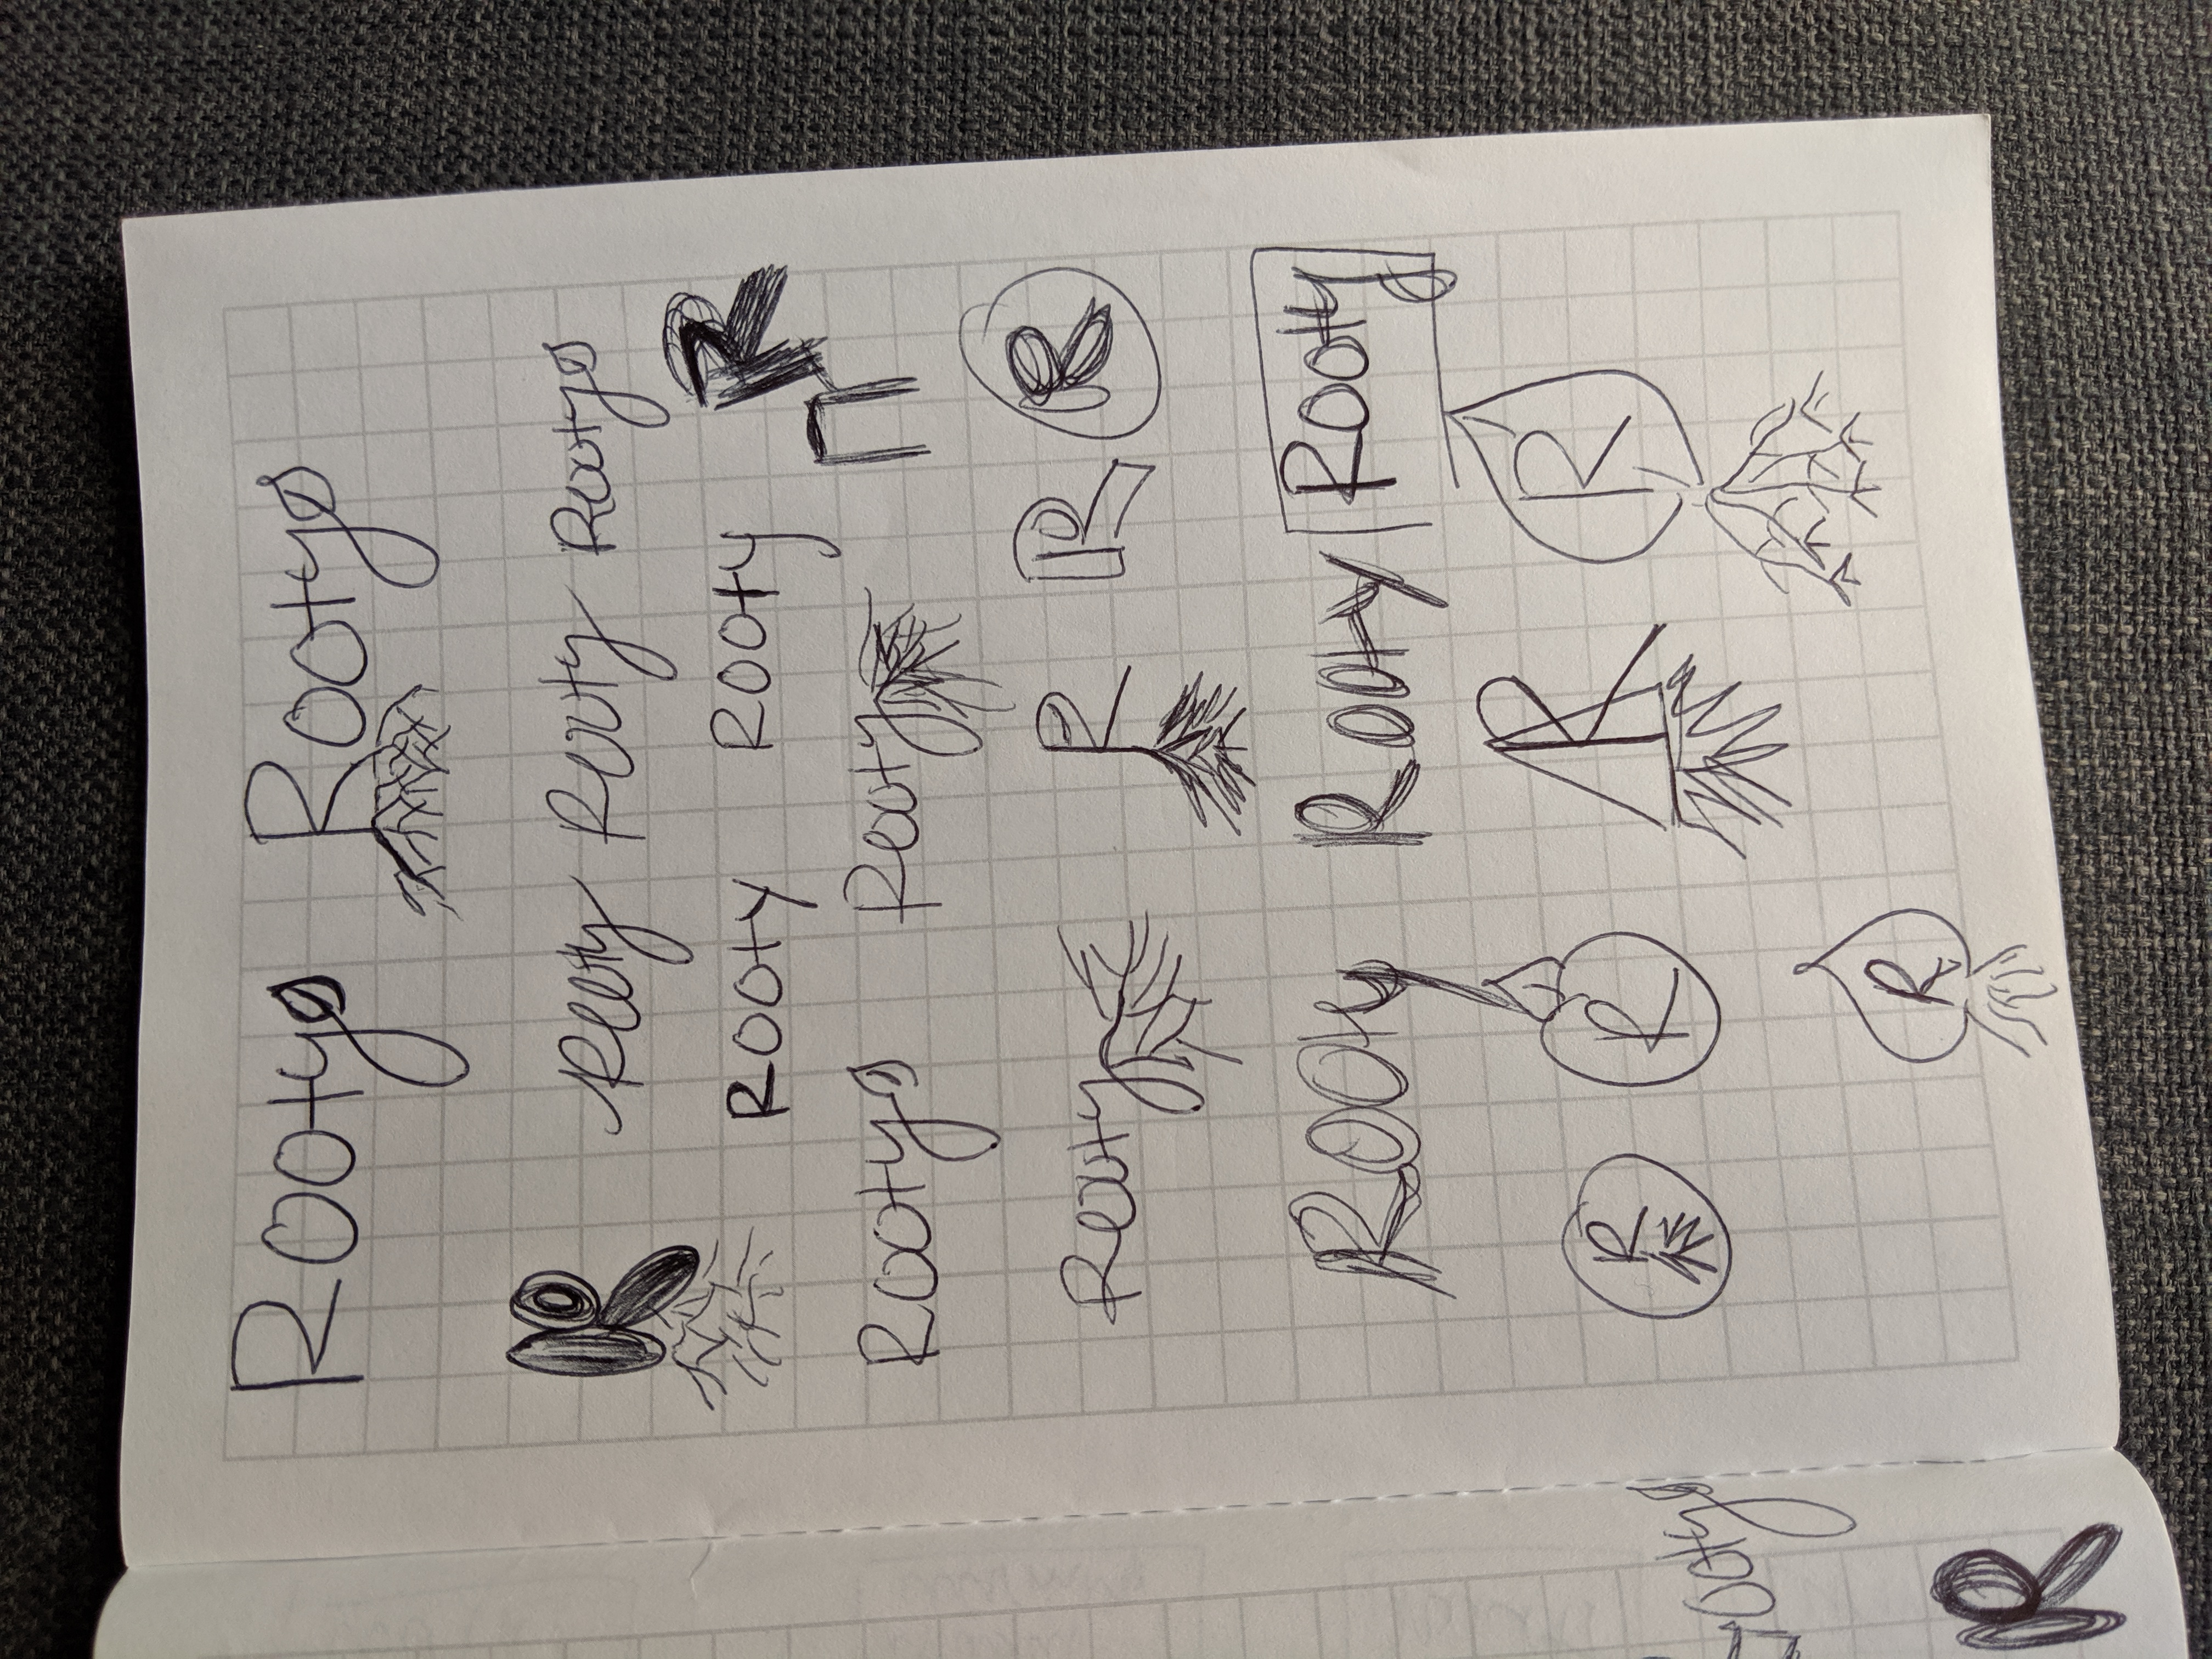 Rooty Rooty
R Rooty Rooty Rooty
Rooty Rooty R
Rooty Rooty
Rooty R R R
Rooty Rooty Rooty
R R R R
R
Rooty
R